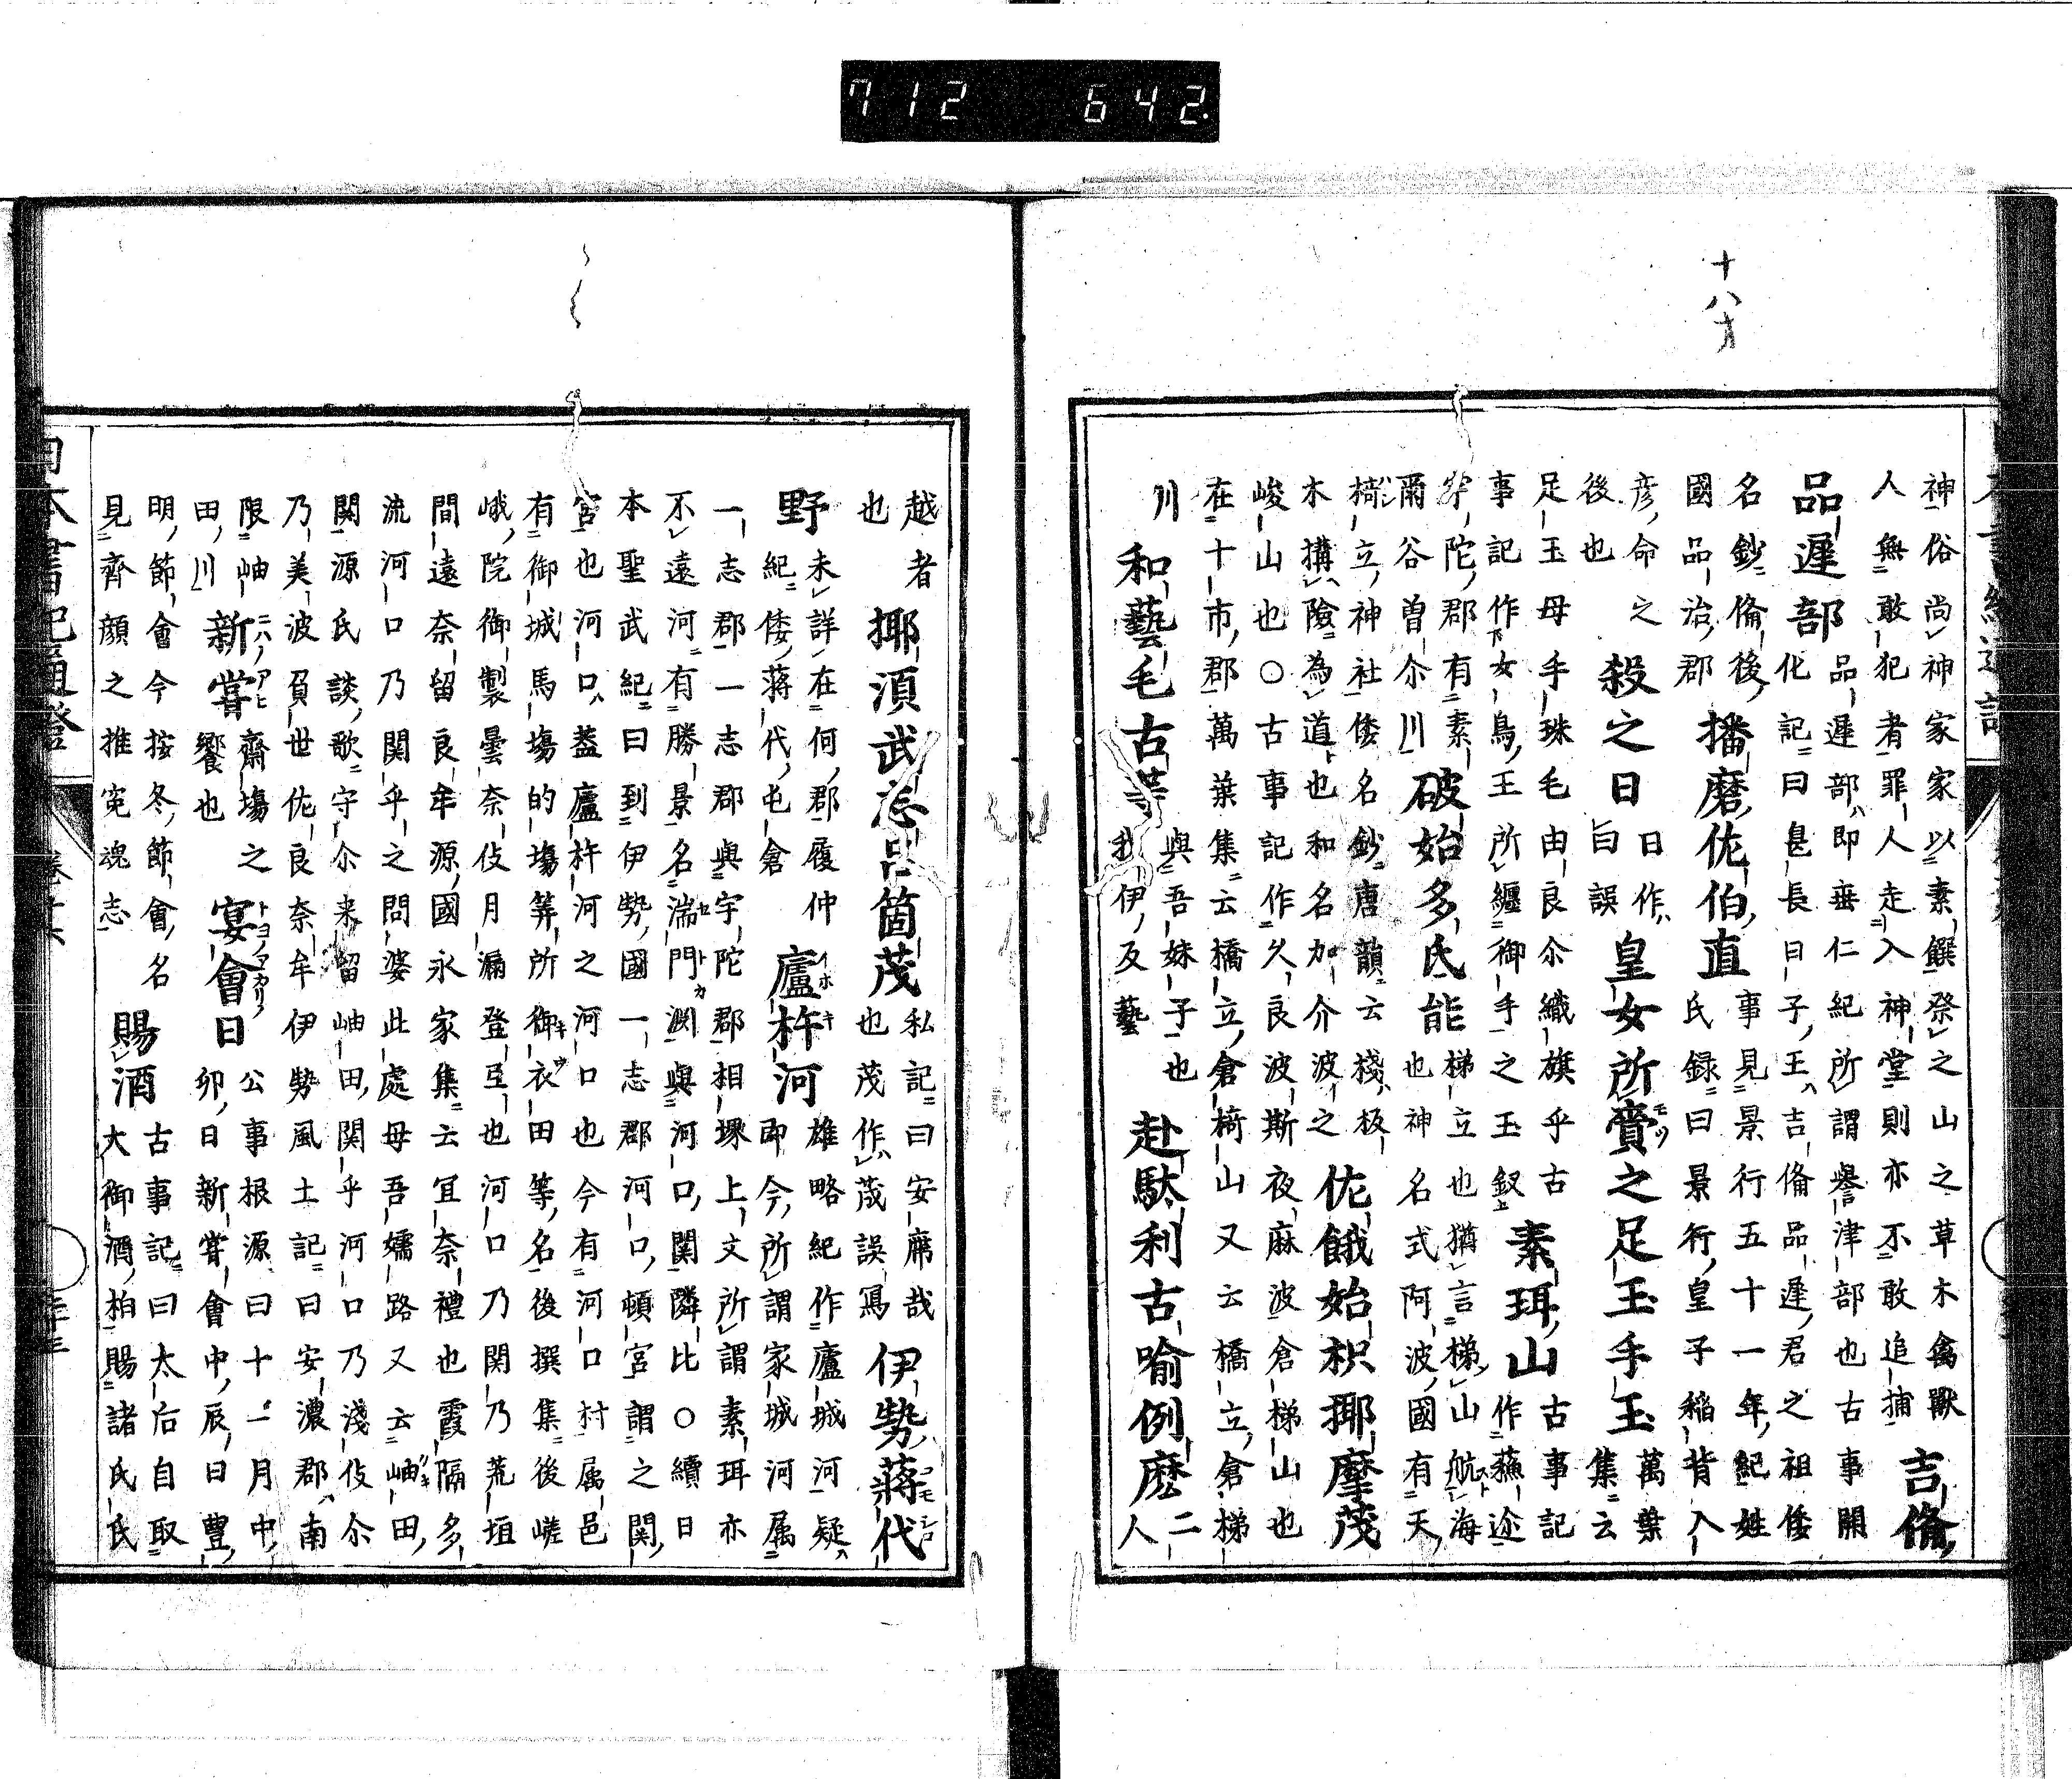 712 642.
十八才
神俗尚神家家以素饌祭之山之草木禽獸
人無敢犯者罪人走入神堂則亦不敢追捕 吉備
品遲部 品遲部即垂仁紀所謂譽津部也古事
化記曰邑長日子王吉備品遲君之祖倭
名鈔備後 播磨佐伯直 事見景行五十一年紀姓
國品治郡 氏録曰景行皇子稲背入
彦命之 殺之日 日作 皇女所賫之足玉手玉 萬葉
後也 旨誤 集云
足玉母手珠毛由良尒織旗乎古 素珥山 古事記
事記作女鳥王所纏御手之玉釼 作蘓迩
陀郡有素 破始多氐能 梯立也猶言梯山航海
爾谷曽尒川 也神名式阿波國有天
椅立神社倭名鈔唐韻云棧板 佐餓始枳揶摩茂
木搆險為道也和名加介波之
峻山也〇古事記作久良波斯夜麻波倉梯山也
在十市郡萬葉集云橋立倉椅山又云橋立倉梯
川 和藝毛古等 與吾妹子也 赴駄利古喻例麽 二
我伊反藝 人
越者 揶湏武志呂箇茂 私記曰安席哉 伊勢蒋代
也 也茂作茂誤寫
野 未詳在何郡履仲 廬杵河 雄略紀作廬城河疑
紀倭蒋代屯倉 即今所謂家城河属
一志郡一志郡與宇陀郡相堺上文所謂素珥亦
不遠河有勝景名湍門渕與河口関隣比〇續日
本聖武紀曰到伊勢國一志郡河口頓宮謂之関
宮也河口盖廬杵河之河口也今有河口村属邑
有御城馬塲的塲等所御衣田等名後撰集後嵯
峨院御製曇奈伎月漏登亘也河口乃関乃荒垣
間遠奈留良牟源國永家集云冝奈禮也霞隔多
流河口乃関乎之問婆此處母吾嬬路又云岫田
関源氏談歌守尒来留岫田関乎河口乃淺伎尒
乃美波負世佐良奈牟伊勢風土記曰安濃郡南
限岫 新嘗 齋塲之 宴會日 公事根源曰十一月中
田川 饗也 卯日新嘗會中辰日豊
明節會今按冬節會名 賜酒 古事記曰太后自取
見齊顔之推寃魂志 大御酒柏賜諸氏氏
日本書紀通證